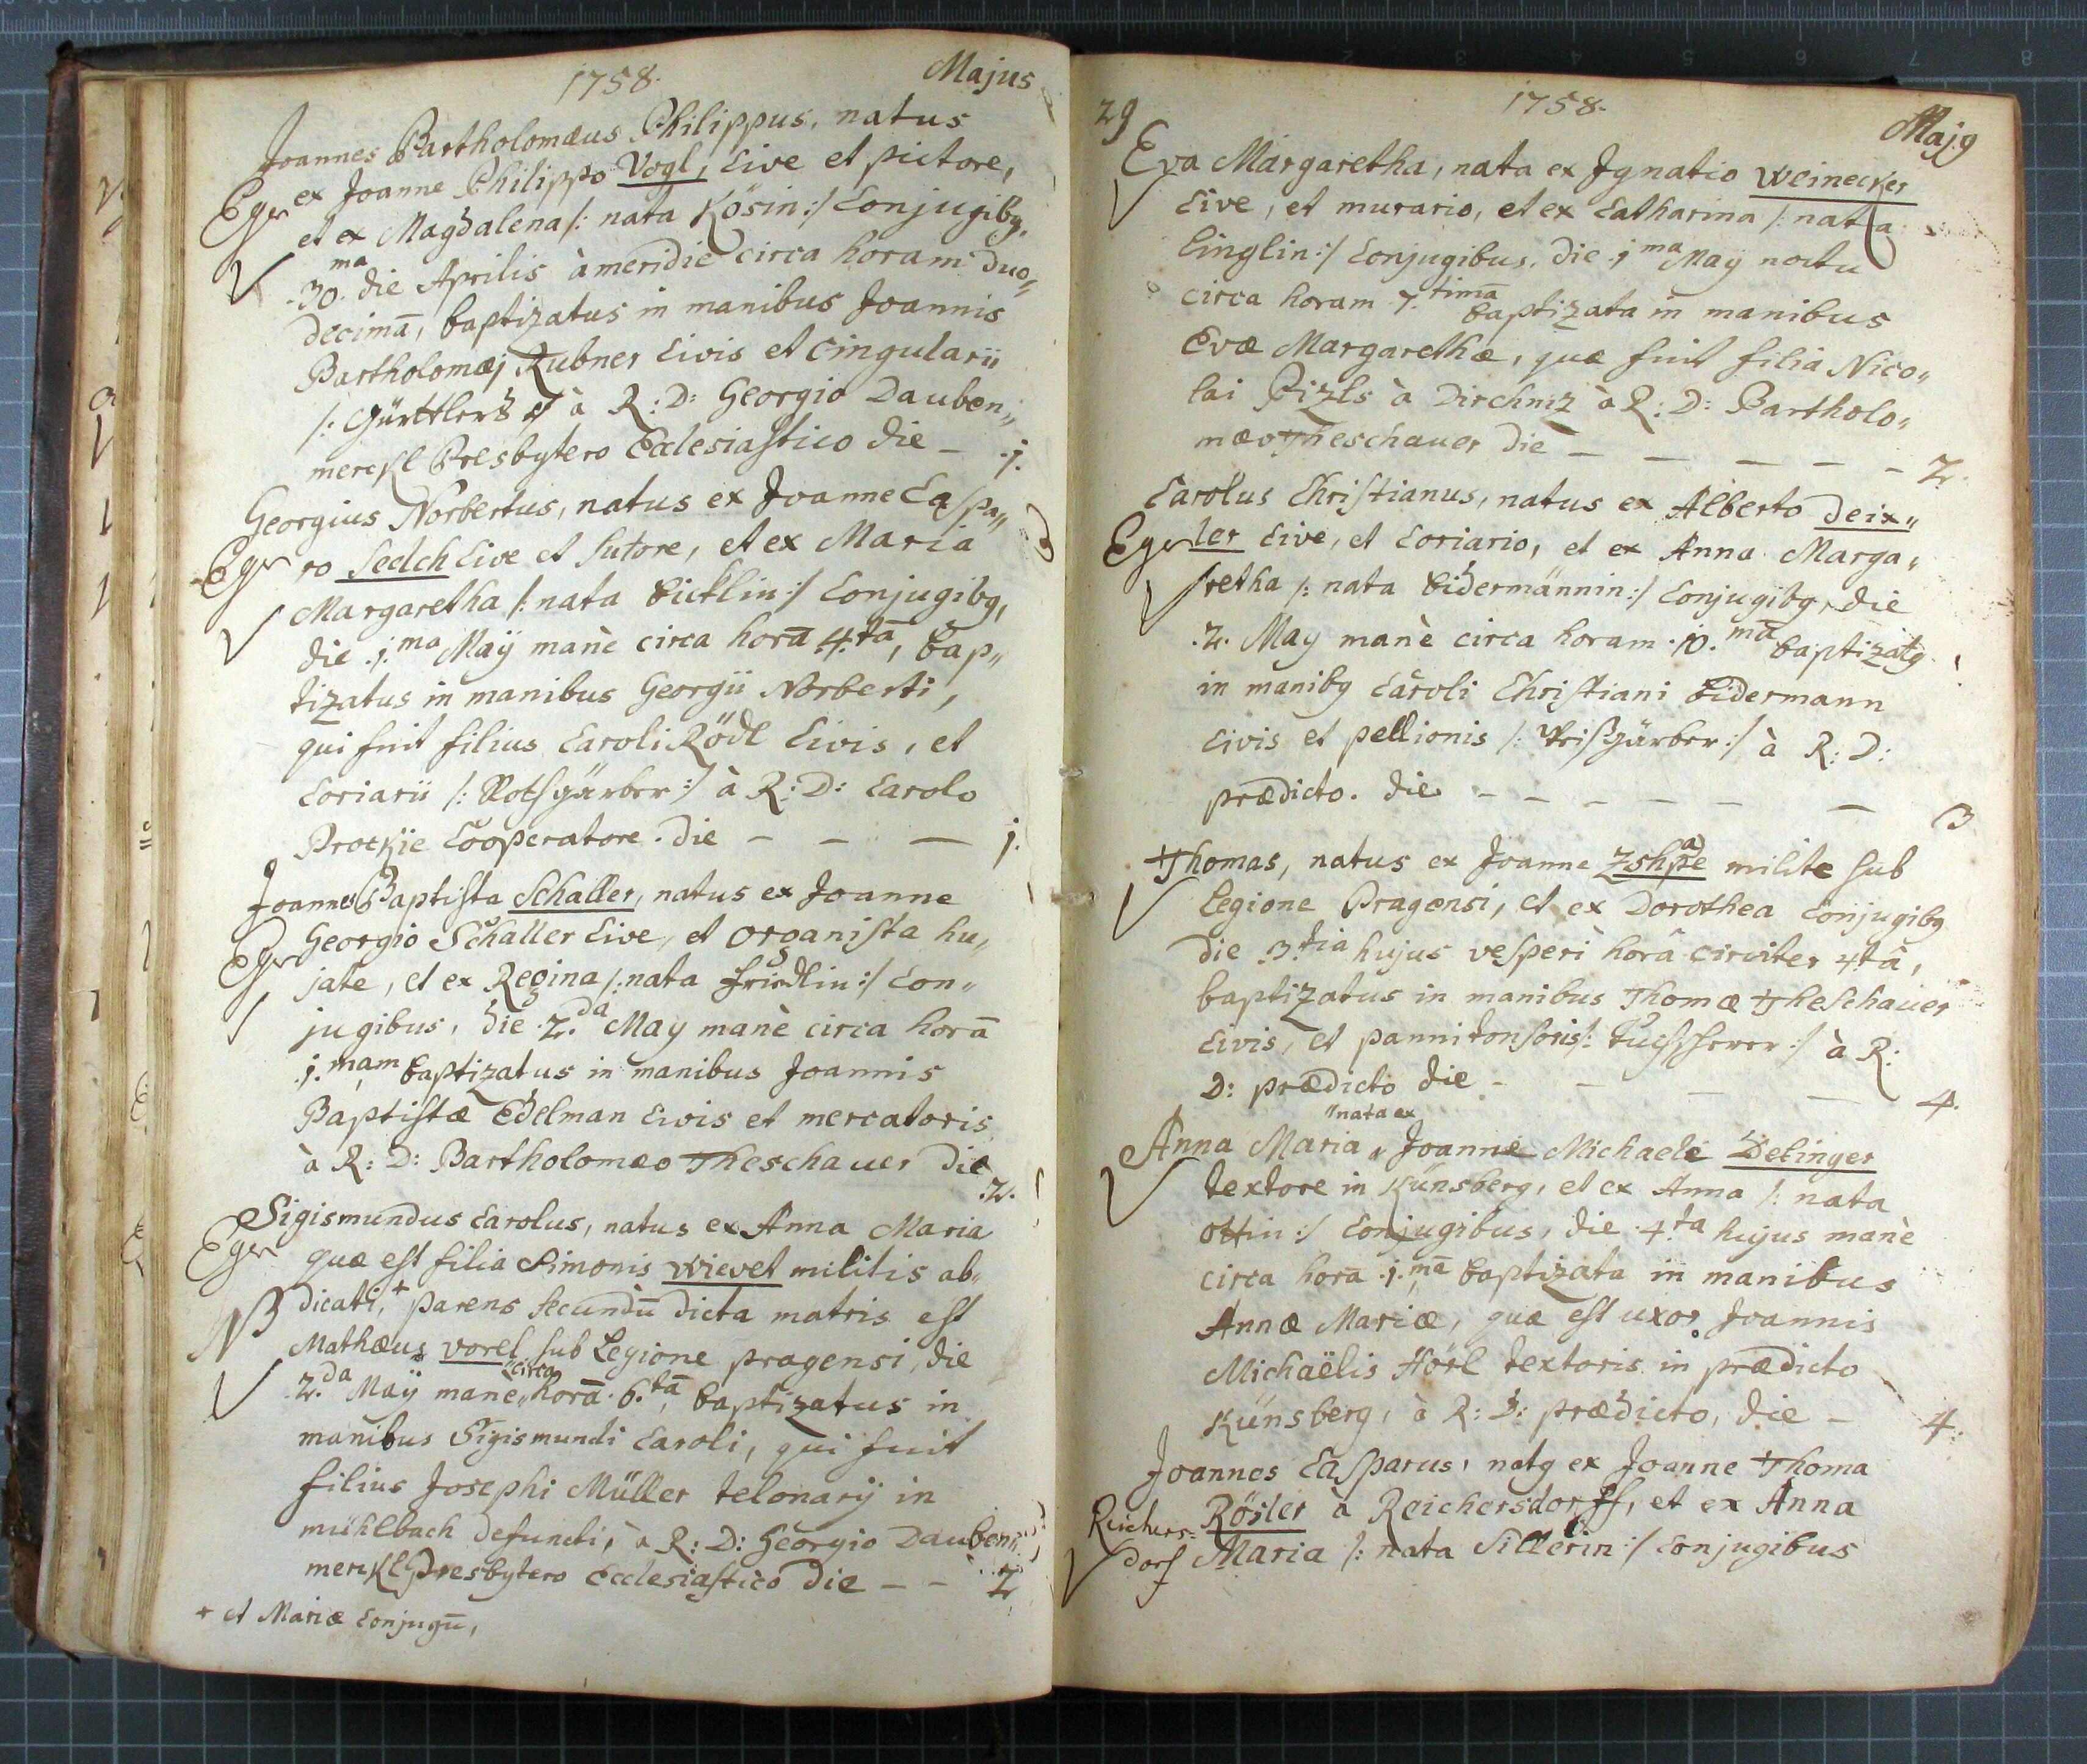 1758.
Majus
Joannes Bartholomæus Philippus, natus
ex Joanne Philippo Vogl, Cive et pictore,
Eger
et ex Magdalena /: nata Kösin :/ Conjugibg.
30.ma die Aprilis à meridie circa horam duo„
decimã, baptizatus in manibus Joannis
Bartholomæj Rubner Civis et cingularii
/: Gürttlers à R: D: Georgio Dauben„
merckl Presbytero Ecclesiastico die – .1.
Georgius Norbertus, natus ex Joanne Caspa„
Eger ro Seelch Cive et sutore, et ex Maria
Margaretha /: nata Bicklin :/ Conjugibg,
die .1.ma Maÿ manè circa horã 4.tã, bap„
tizatus in manibus Georgii Norberti,
qui fuit filius Caroli Rödl Civis, et
Coriarii /: Rothgärber :/ à R: D: Carolo
Prockie Cooperatore. die – – — 1.
Joannes Baptista Schaller, natus ex Joanne
Eger Georgio Schaller Cive, et organista hu„
jate, et ex Regina /: nata Friedlin :/ Con„
jugibus, die .2.da May manè circa horã
.1.mam baptizatus in manibus Joannis
Baptistæ Edelman Civis et mercatoris
à R: D: Bartholomæo Theschauer die
.2.
Sigismundus Carolus, natus ex Anna Maria
Eger quæ est filia Simonis Wievet militis ab„
NB dicati, + parens secundũ dicta matris est
Mathæus Vorel sub Legione pragensi, die
„circa
2.da Maÿ manè„ horã. 6.tã, baptizatus in
manibus Sigismundi Caroli, qui fuit
filius Josephi Müller telonarij in
mühlbach defuncti, à R: D: Georgio Dauben„
merckl Presbytero Ecclesiastico die – – 2
+ et Mariæ Conjugũ,
29
1758.
Majg
Eva Margaretha, nata ex Ignatio Weinecker
Cive, et murario, et ex Catharina /: nata
Linglin :/ Conjugibus, die .1ma Maÿ noctu
circa horam 7.timã baptizata in manibus
Evæ Margarethæ, quæ fuit filia Nico„
lai Pizls à Dirchniz à R: D: Bartholo„
mæo Theschauer die – – – – – 2.
Carolus Christianus, natus ex Alberto Deix„
Eger ler Cive, et Coriario, et ex Anna Marga„
retha /: nata Bidermännin :/ Conjugibg, die
.2. May manè circa horam .10.mã baptizatg
in manibg Caroli Christiani Bidermann
Civis et pellionis /: Weisgärber :/ à R: D:
prædicto. die – – – – – — 3
a
Thomas, natus ex Joanne Zshpe milite sub
Legione Pragensi, et ex Dorothea Conjugibg
die .3.tia hujus vesperi horâ circiter 4tâ,
baptizatus in manibus Thomæ Theschauer
Civis, et pannitonsoris /: Tuchscherer :/ à R:
D: prædicto die – – — — 4.
„nata ex
Anna Maria „ Joanne Michaele Detinger
textore in Künsberg, et ex Anna /: nata
Ottin :/ Conjugibus, die .4.ta hujus manè
circa horã .1.mã baptizata in manibus
Annæ Mariæ, quæ est uxor Joannis
Michaëlis Hörl textoris in prædicto
Künsberg, à R: D: prædicto, die – 4.
Joannes Casparus, natg ex Joanne Thoma
Reichers= Rösler à Reichersdorff, et ex Anna
dorf Maria /: nata Sillerin :/ Conjugibus